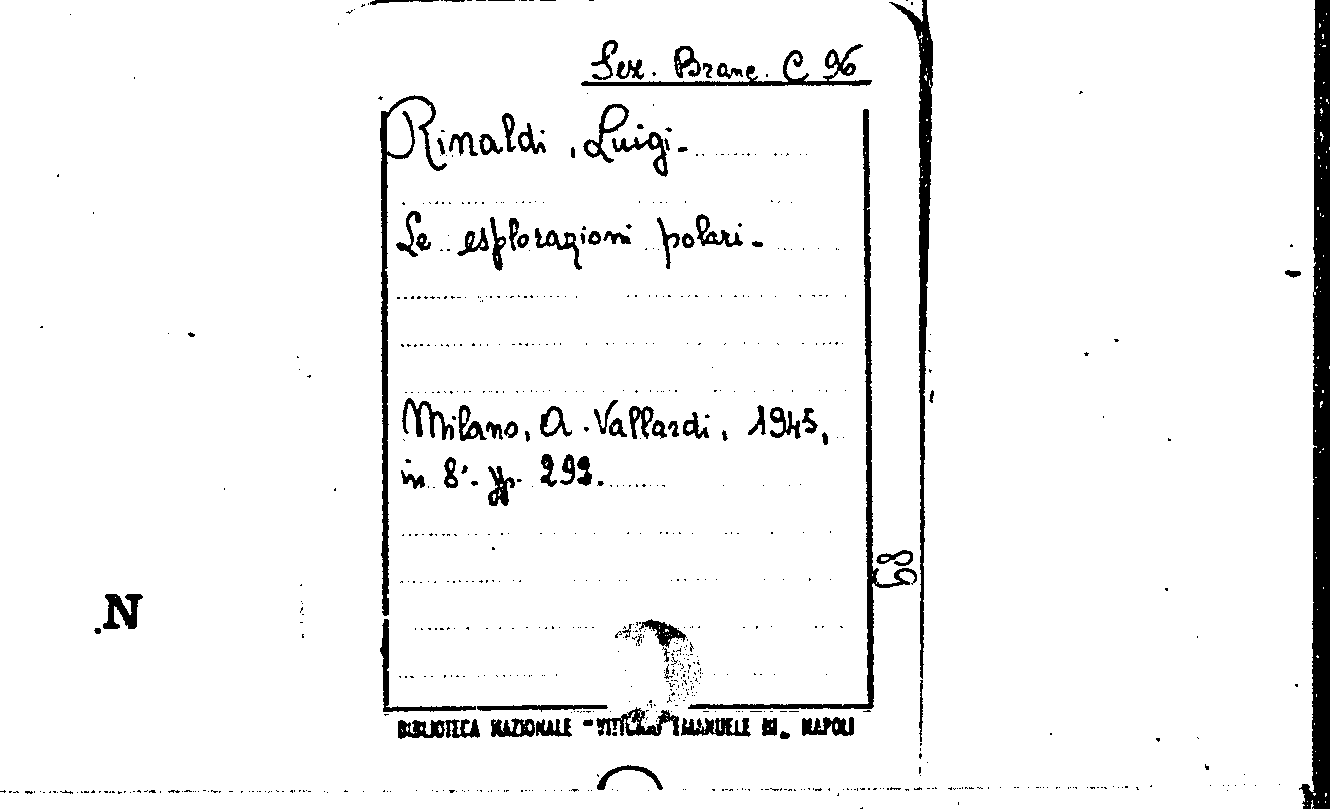 Sez. Branc. C 96
Rinaldi, Luigi.
Le esplorazioni polari.
Milano, A. Vallardi, 1945,
in 8°. pp. 292.
89
N
BIBLIOTECA NAZIONALE "VITTORIO EMANUELE III„ NAPOLI